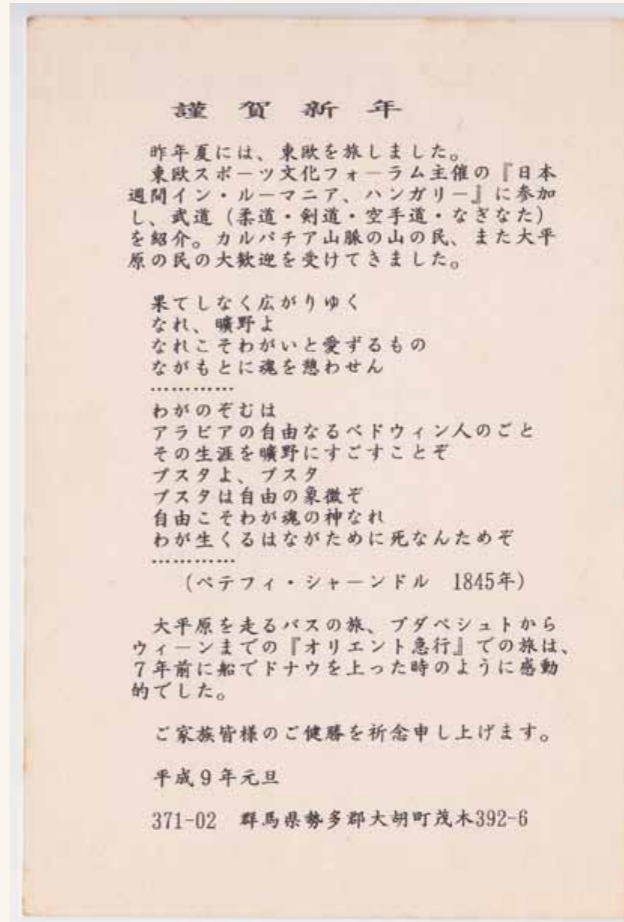 謹賀新年
昨年夏には、東欧を旅しました。
東欧スポーツ文化フォーラム主催の『日本
週間イン・ルーマニア、ハンガリー』に参加
し、武道（柔道・剣道・空手道・なぎなた）
を紹介。カルパチア山脈の山の民、また大平
原の民の大歓迎を受けてきました。
果てしなく広がりゆく
なれ、曠野よ
なれこそわがいと愛ずるもの
ながもとに魂を憩わせん
…………
わがのぞむは
アラビアの自由なるベドウィン人のごと
その生涯を曠野にすごすことぞ
プスタよ、プスタ
プスタは自由の象徴ぞ
自由こそわが魂の神なれ
わが生くるはながために死なんためぞ
…………
（ペテフィ・シャーンドル　1845年）
大平原を走るバスの旅、ブダペシュトから
ウィーンまでの『オリエント急行』での旅は、
７年前に船でドナウを上った時のように感動
的でした。
ご家族皆様のご健勝を祈念申し上げます。
平成９年元旦
371-02　群馬県勢多郡大胡町茂木392-6